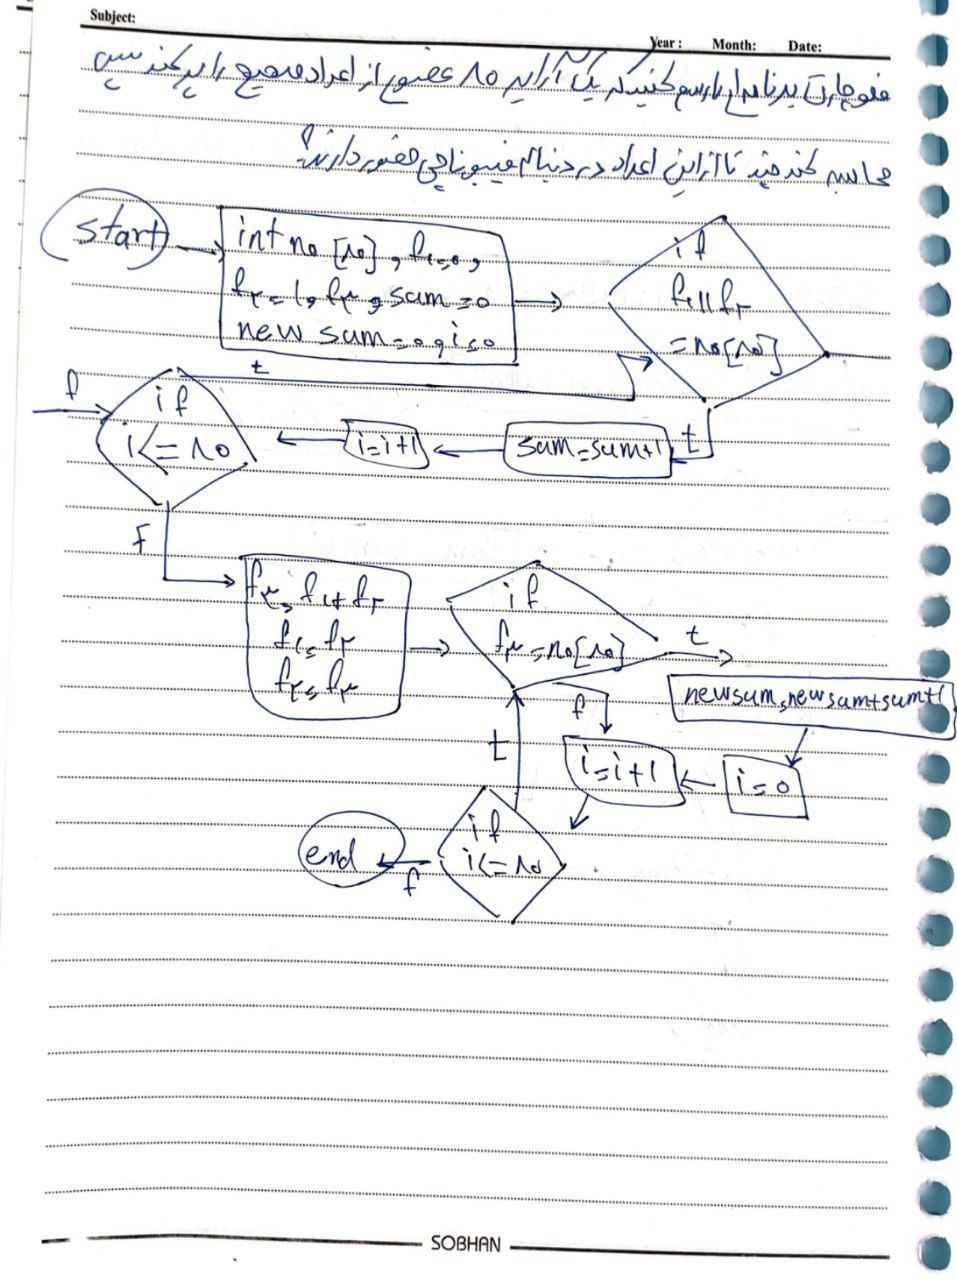 Subject:
Year: Month: Date:
فلوچارت برنامه‌ای را رسم کنید که یک آرایه ۸۰ عضوی از اعداد صحیح را پر کند سپس
محاسبه کند چند تا از این اعداد در دنباله فیبوناچی حضور دارند؟
start
int no [۸۰] , f۱=۰ ,
f۲=۱, f۳ , sum=۰
new sum=۰ , i=۰
if
f۱||f۲
=no[۸۰]
t
f
if
i<=۸۰
i=i+۱
sum=sum+۱
t
F
f۳=f۱+f۲
f۱=f۲
f۲=f۳
if
f۳=no[۸۰]
t
newsum=newsum+sum+۱
f
i=i+۱
i=۰
t
if
i<=۸۰
end
f
SOBHAN